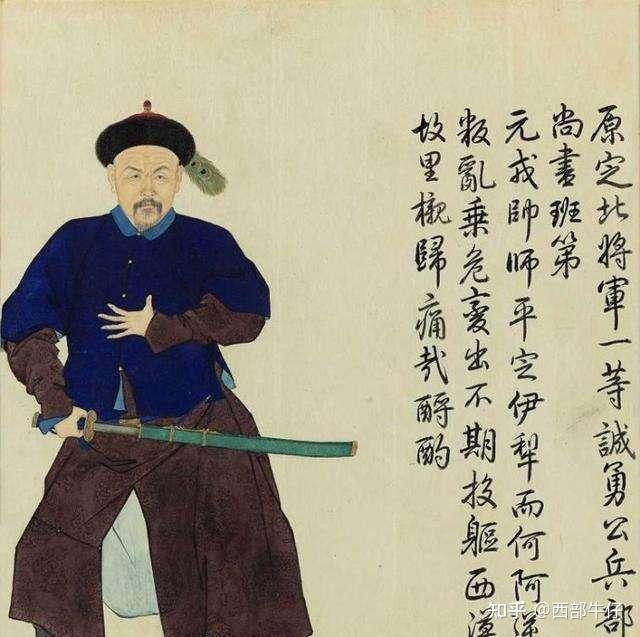 原定北將軍一等誠勇公兵部
尚書班第
元戎帥師平定伊犁而何阿逆
叛亂乗危變出不期投軀西漠
故里櫬歸痛哉酹酌
知乎 @西部牛仔